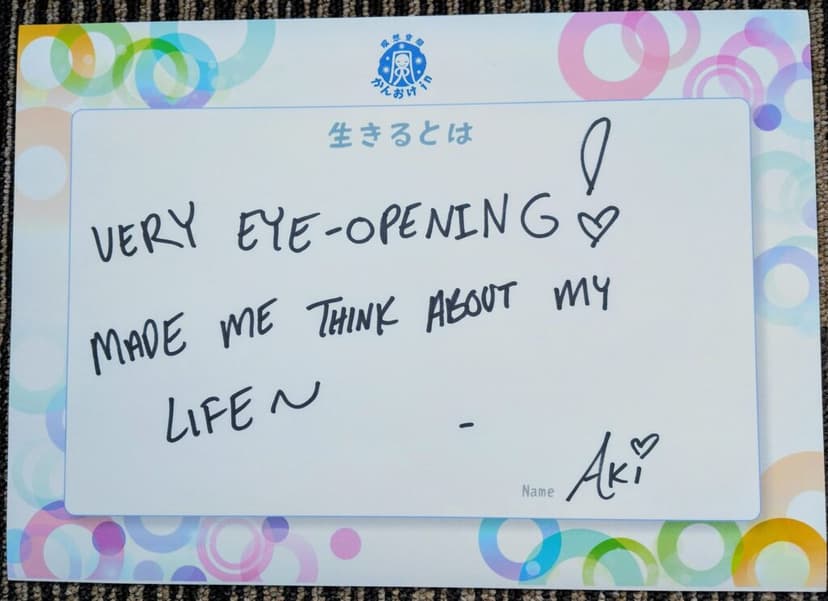 瞑想空間
かんおけin
生きるとは
VERY EYE-OPENING!
MADE ME THINK ABOUT MY
LIFE~
-
Name AKi